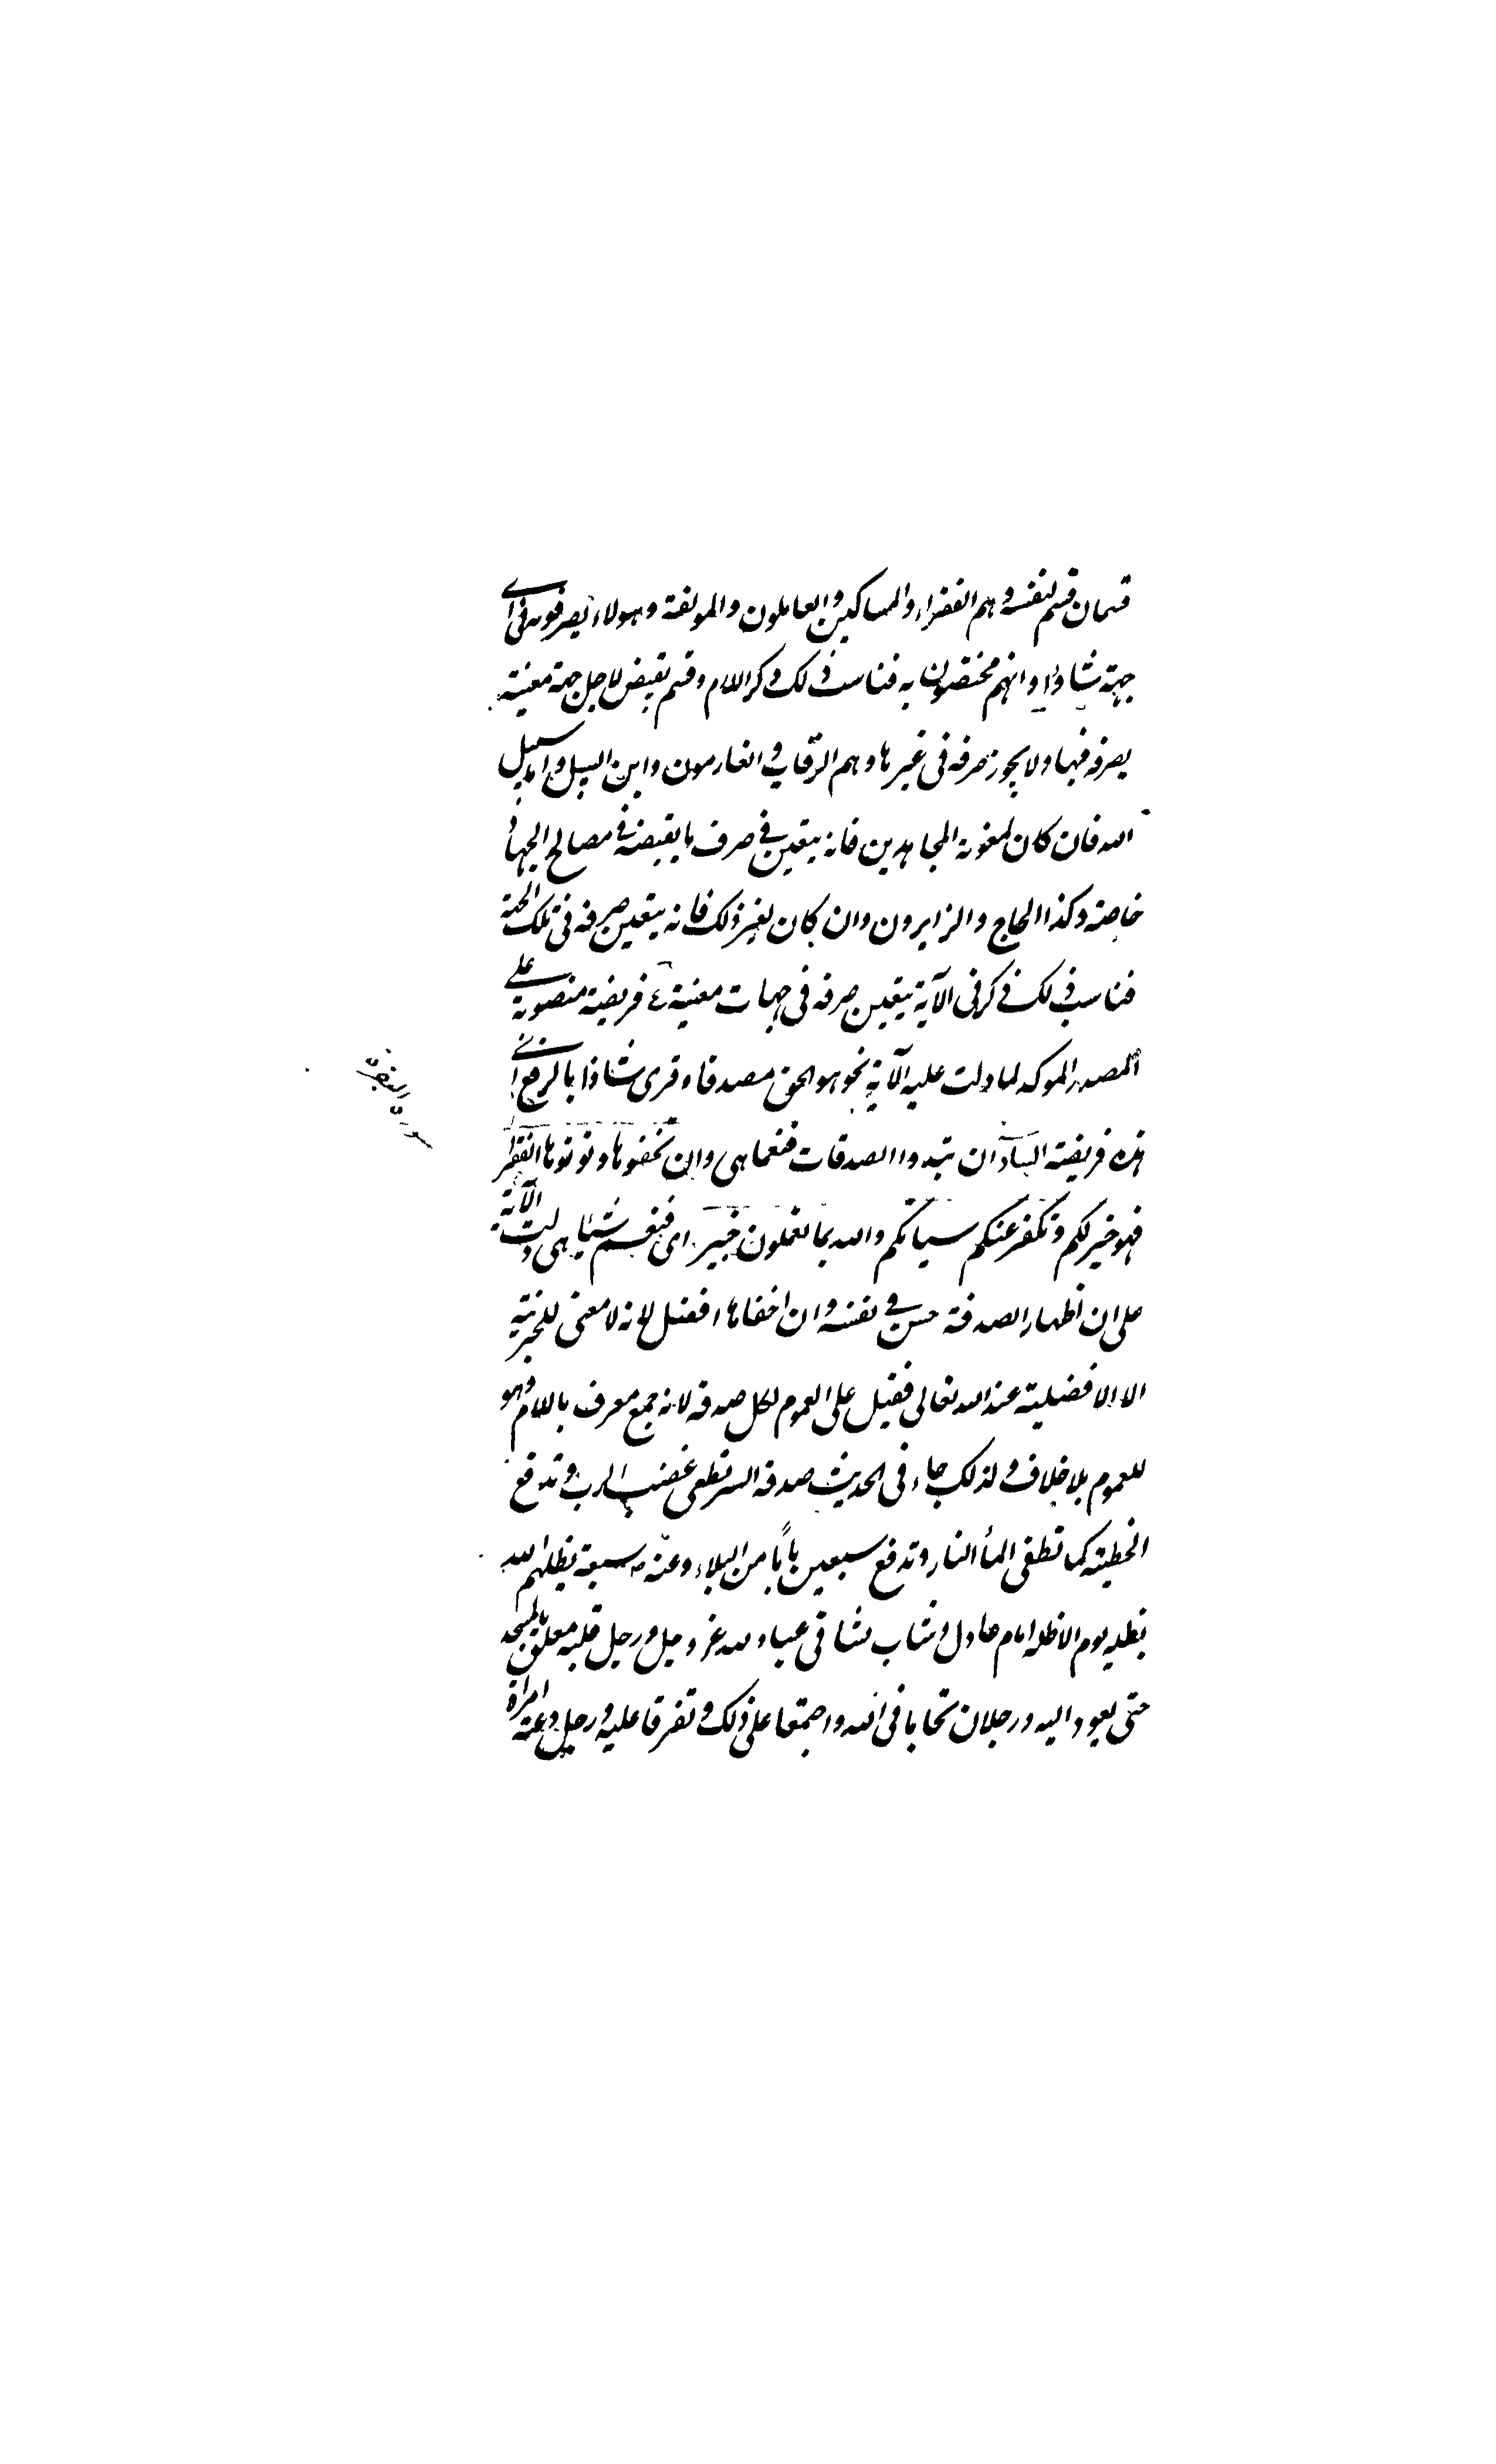 قسمان قسم لنفسه وهم الفقراء والمساكين والعاملون والمولفة وهولاء يصرفونه في اي
جهة شاؤا وانهم مختصون به فناسب ذلك ذكر اللام وقسم يقبض لاجل جهة معينة
يصرفه فيها ولا يجوز صرفه في غيرها وهم الرقاب و الغارمون وابن السبيل واما سبيل
الله فان كان لمعونة المجاهدين فانه يتعين في صرف ما يقبضه في مصالح الجهاد
خاصة وكذا الحاج والزايرون وان كان لغير ذلك فانه يتعين صرفه في تلك الجهة
فناسب ذلك ذكر في الآية يتعين صرفه في جهات معينة ع فريضة منصوبة على
المصدر الموكد لما دلت عليه الآية نحو هو الحق مصدقا وقرى شاذا بالرفع اي
هذه فريضة السادة ان تبدوا الصدقات فنعما هي وان تخفوها وتوتوها الفقراء
فهو خير لكم ونكفر عنكم سياتكم والله بما تعملون خبير اى فنعم شيئا هي دلت الآية
على ان اظهار الصدقة حسن في نفسه وان اخفاها افضل لانه لا معنى للخيرية
الا الافضلية عند الله تعالى فقيل على العموم لكل صدقة لانه جمع معرف باللام وهو
للعموم بلا خلاف ولذلك جاء في الحديث صدقة السر تطفى غضب الرب وتدفع
الخطيئة كما تطفى الماء النار وتدفع سبعين بابًا من البلاء وعنه ص سبعة يظلهم الله
بظله يوم لا ظل الا ظله امام عادل وشاب نشا في عبادة الله عز وجل ورجل قلبه معلق بالمسجد
حتى يعود اليه ورجلان تحابا في الله واجتمعا على ذلك وتفرقا عليه ورجل دعته امراة